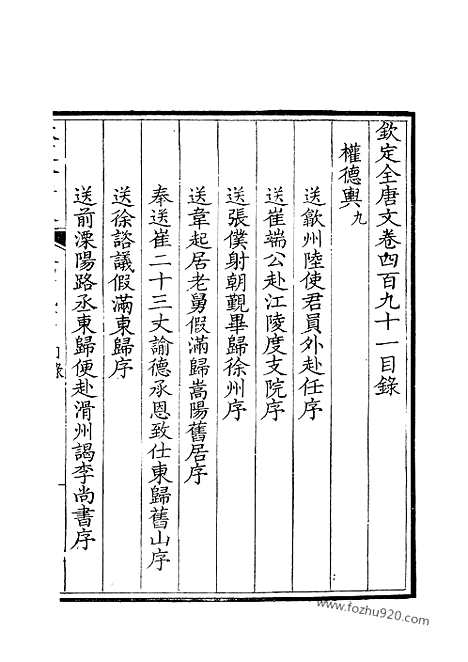 欽定全唐文卷四百九十一目錄
權德輿九
送歙州陸使君員外赴任序
送崔端公赴江陵度支院序
送張僕射朝覲畢歸徐州序
送韋起居老舅假滿歸嵩陽舊居序
奉送崔二十三丈諭德承恩致仕東歸舊山序
送徐諮議假滿東歸序
送前溧陽路丞東歸便赴滑州謁李尚書序
www.fozhu920.com